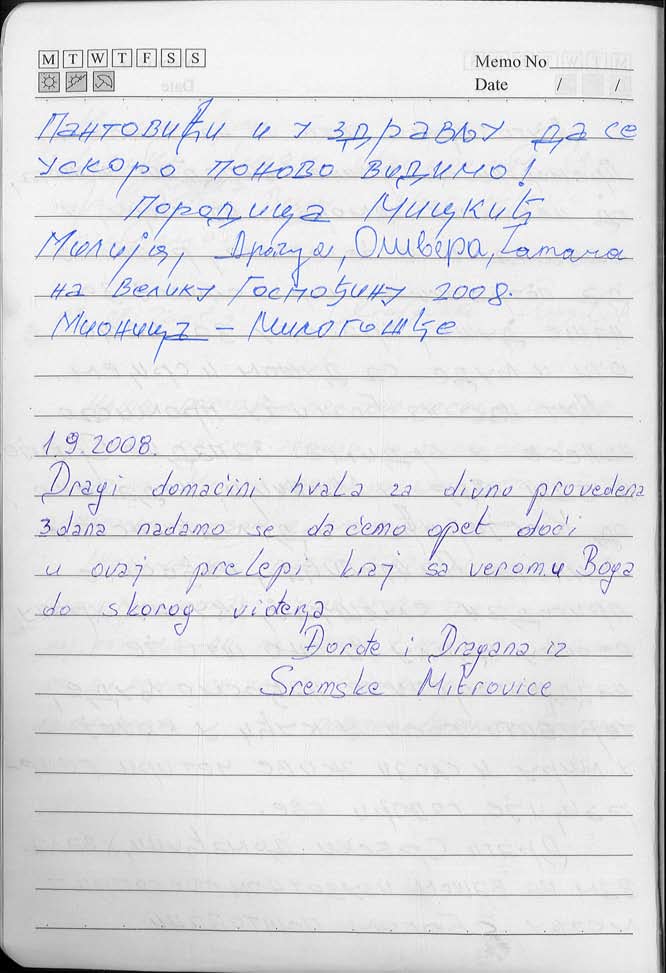 M T W T F S S
Memo No
Date / /
Пантовићи и у здрављу да се
ускоро поново видимо!
Породица Мицкић
Милија, Драгуа, Оливера, Татана
на Велику Госпођину 2008.
Мионица – Милогошће
1.9.2008.
Dragi domaćini hvala za divno provedena
3 dana nadamo se da ćemo opet doći
u ovaj prelepi kraj sa verom u Boga
do skorog viđenja
Đorđe i Dragana iz
Sremske Mitrovice